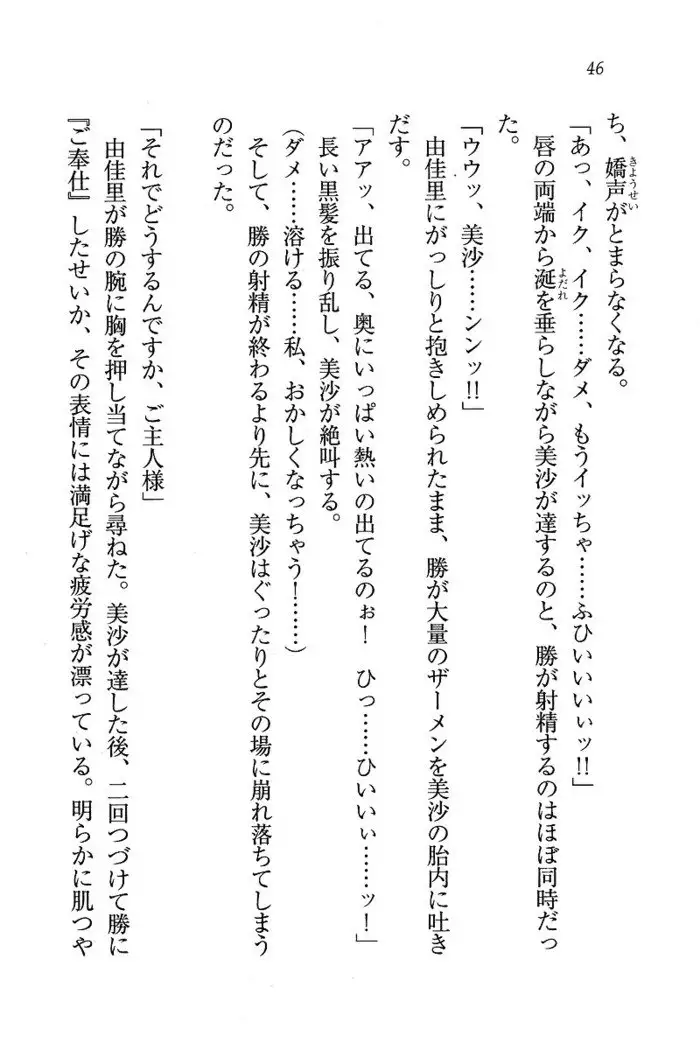 46
ち、嬌声がとまらなくなる。
「あっ、イク、イク……ダメ、もうイッちゃ……ふひいいいぃッ!!」
唇の両端から涎を垂らしながら美沙が達するのと、勝が射精するのはほぼ同時だっ
た。
「ウウッ、美沙……ンンッ!!」
由佳里にがっしりと抱きしめられたまま、勝が大量のザーメンを美沙の胎内に吐き
だす。
「アアッ、出てる、奥にいっぱい熱いの出てるのぉ！　ひっ……ひいいぃ……ッ！」
長い黒髪を振り乱し、美沙が絶叫する。
(ダメ……溶ける……私、おかしくなっちゃう！……)
そして、勝の射精が終わるより先に、美沙はぐったりとその場に崩れ落ちてしまう
のだった。
「それでどうするんですか、ご主人様」
由佳里が勝の腕に胸を押し当てながら尋ねた。美沙が達した後、二回つづけて勝に
『ご奉仕』したせいか、その表情には満足げな疲労感が漂っている。明らかに肌つや